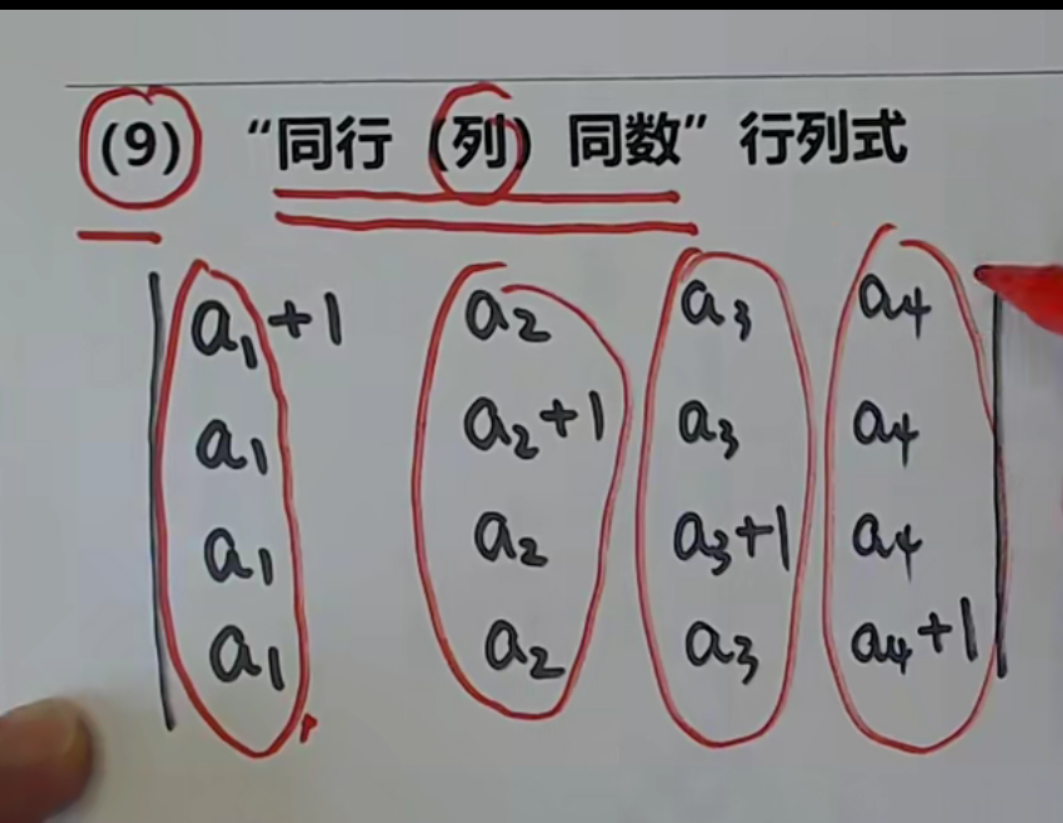 (9) “同行（列）同数”行列式
a₁+1 a₂ a₃ a₄
a₁ a₂+1 a₃ a₄
a₁ a₂ a₃+1 a₄
a₁ a₂ a₃ a₄+1